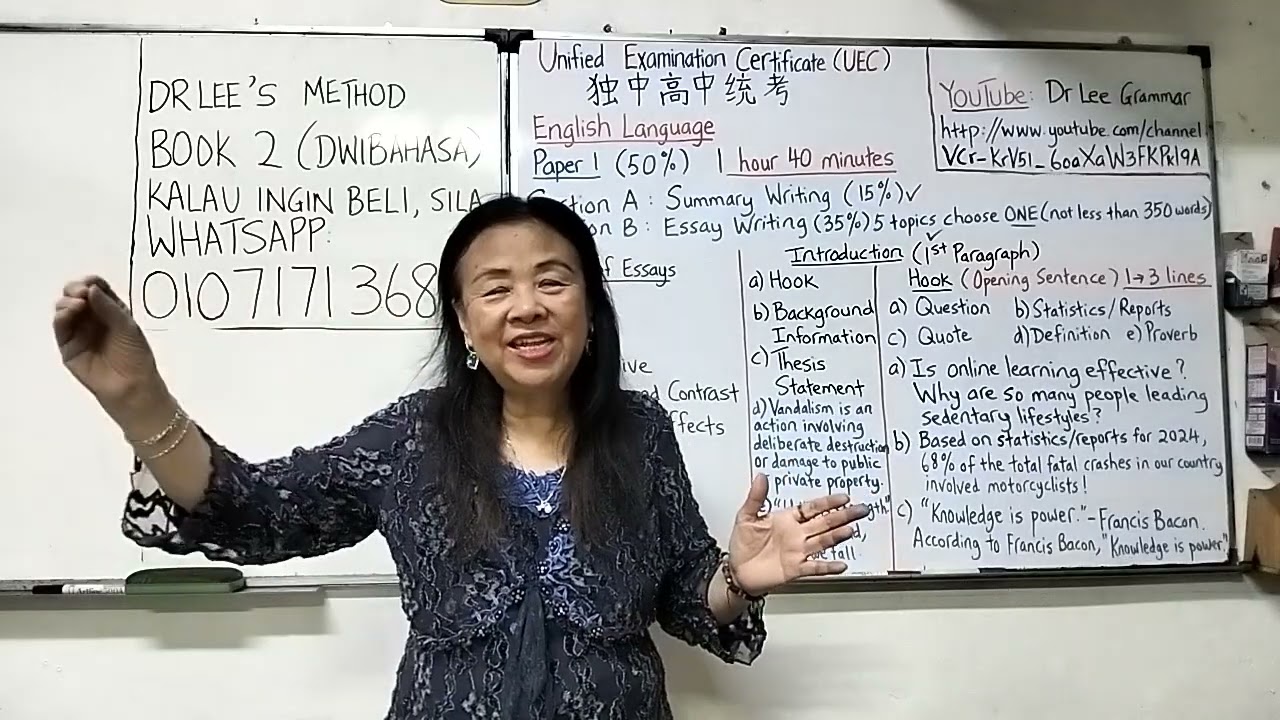 DR LEE'S METHOD
BOOK 2 (DWIBAHASA)
KALAU INGIN BELI, SILA
WHATSAPP:
0107171368
Unified Examination Certificate (UEC)
独中高中统考
English Language
Paper 1 (50%) 1 hour 40 minutes
A : Summary Writing (15%) ✓
B : Essay Writing (35%) 5 topics choose ONE (not less than 350 words)
Essays
and Contrast
YouTube: Dr Lee Grammar
http://www.youtube.com/channel
Introduction (1st Paragraph)
a) Hook
b) Background
Information
c) Thesis
Statement
d) Vandalism is an
action involving
deliberate destruction
or damage to public
private property.
fall
Hook (Opening Sentence) 1→3 lines
a) Question b) Statistics/Reports
c) Quote d) Definition e) Proverb
a) Is online learning effective?
Why are so many people leading
sedentary lifestyles?
b) Based on statistics/reports for 2024,
68% of the total fatal crashes in our country
involved motorcyclists!
c) "Knowledge is power." – Francis Bacon.
According to Francis Bacon, "Knowledge is power"